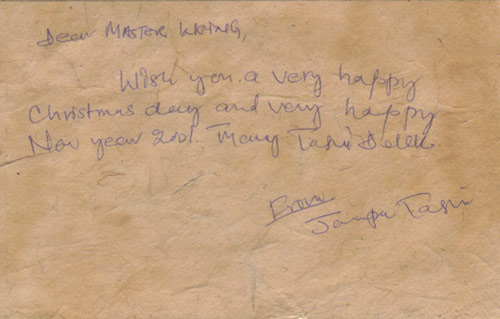 Dear MASTER WANG,
Wish you a very happy
Christmas day and very happy
New year 2001. Many Tashi Delek.
From
Jampa Tashi